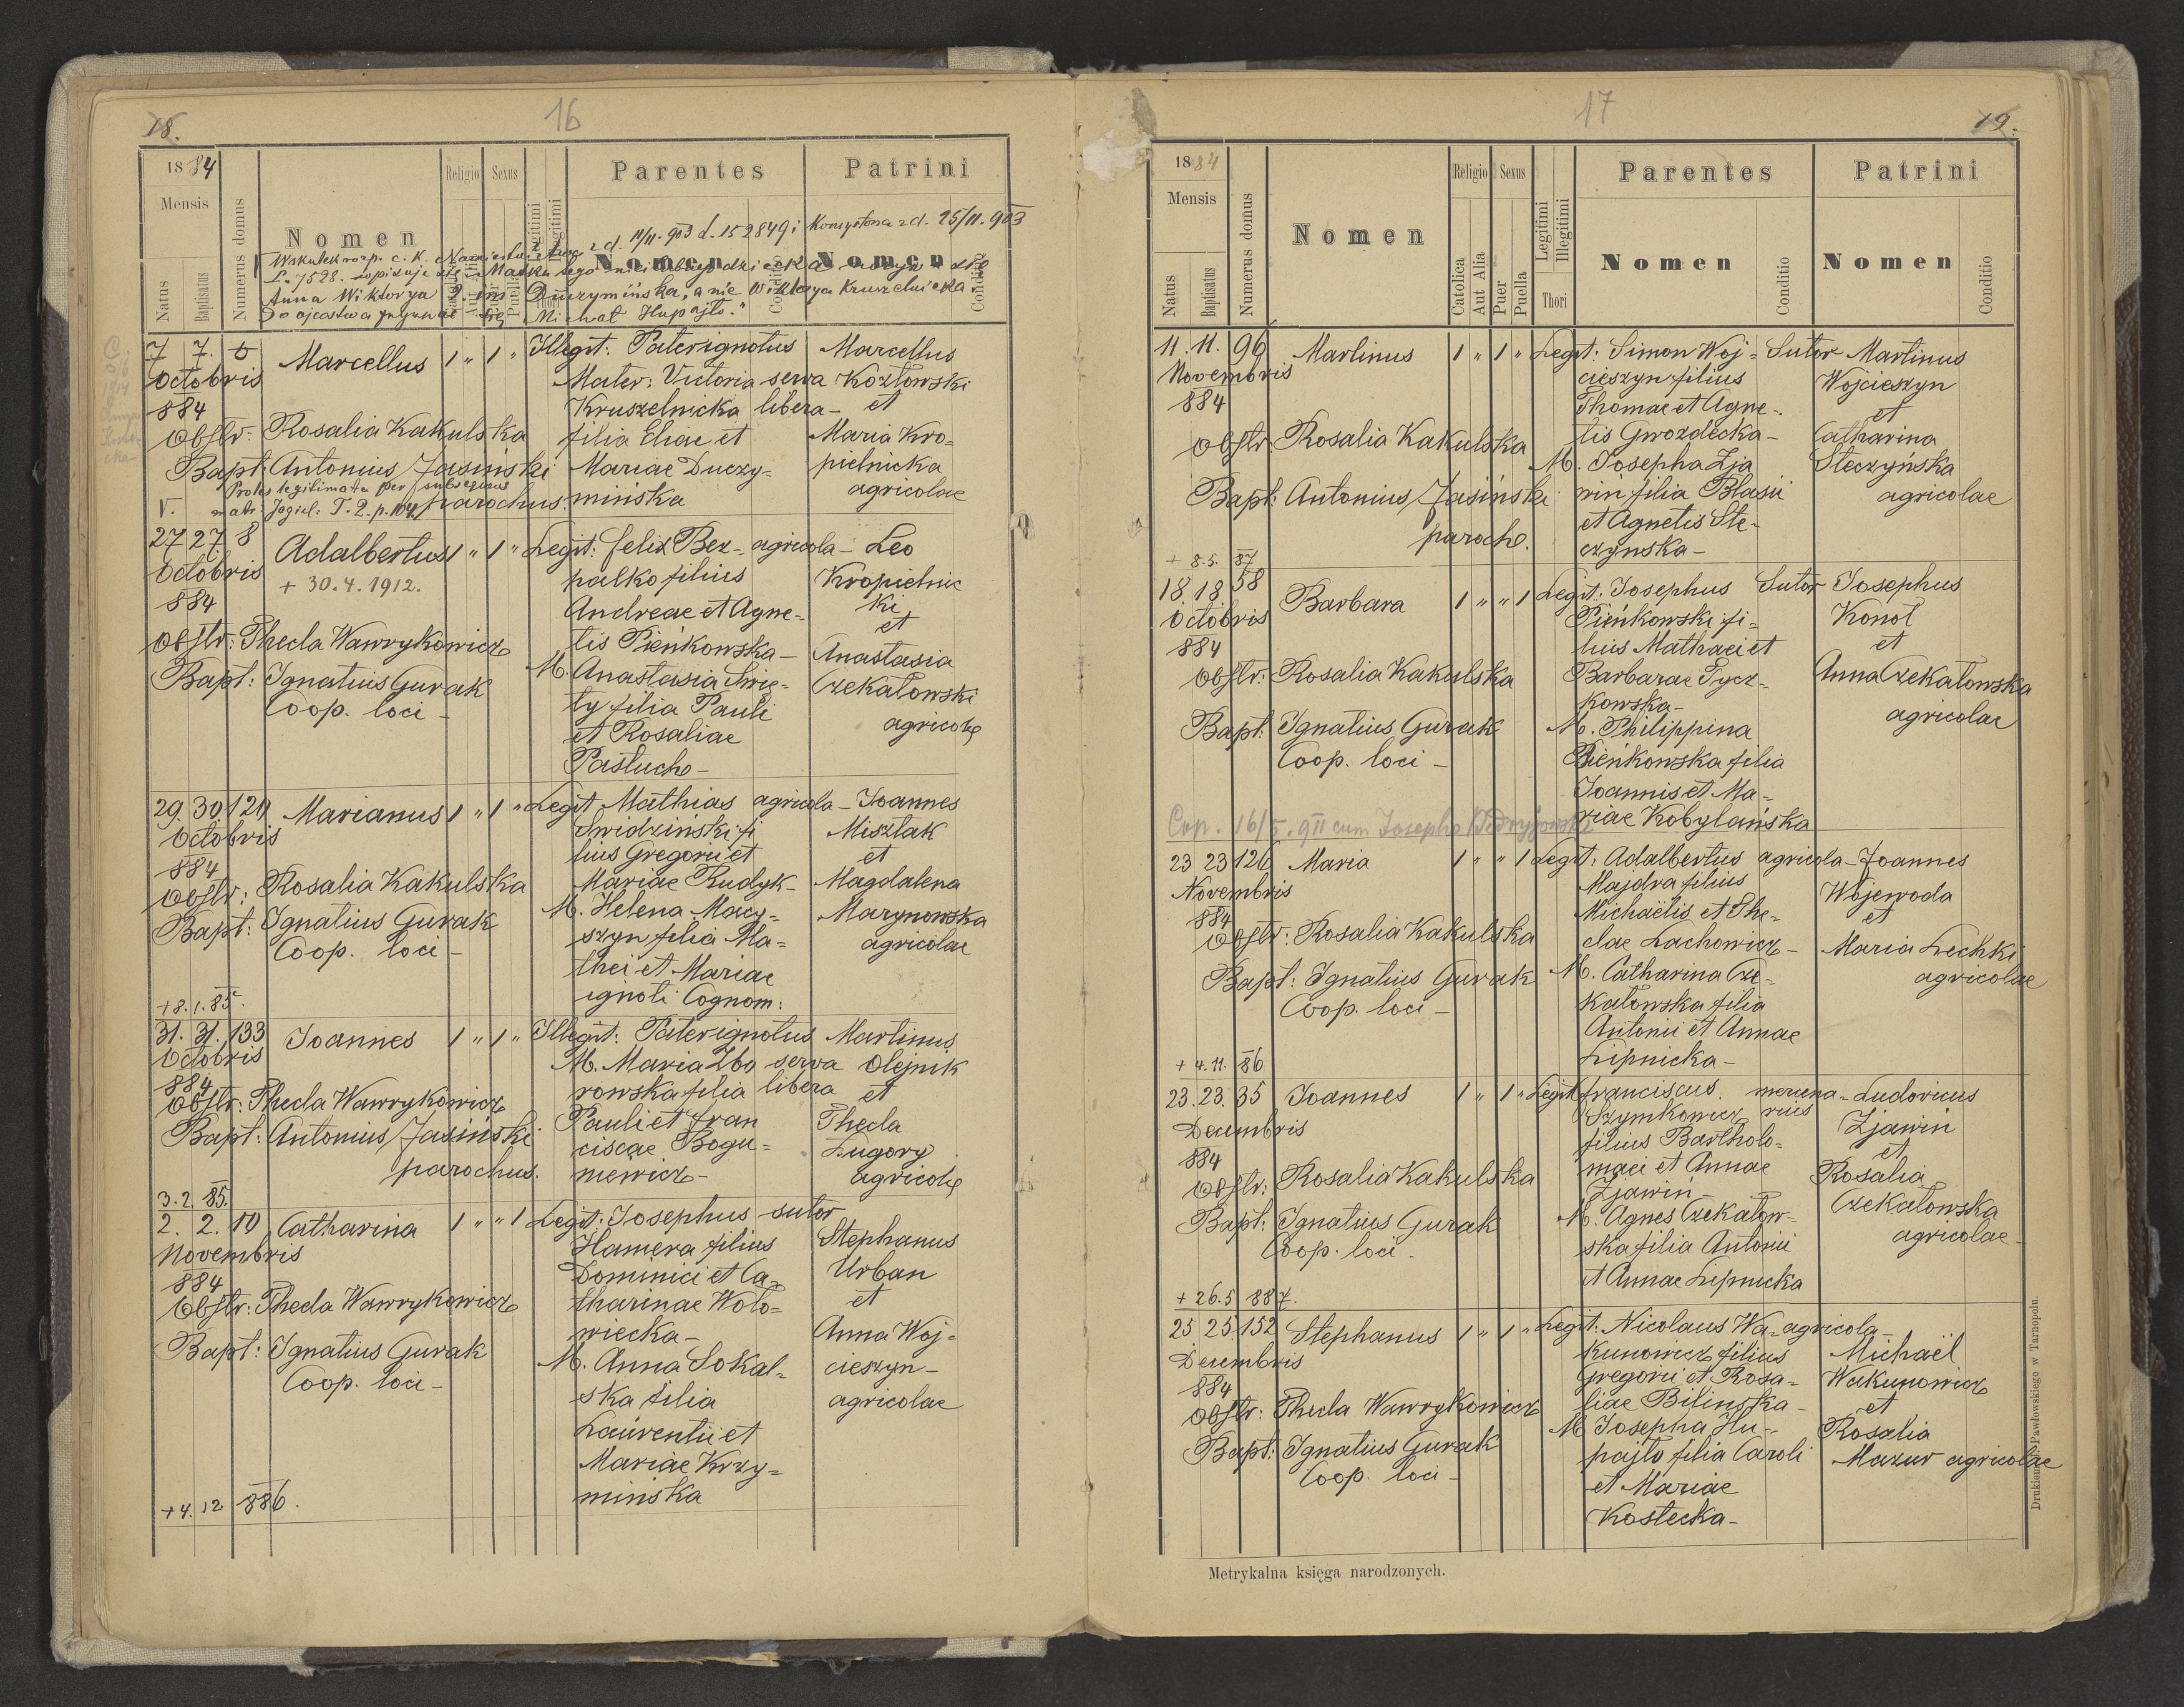 18.
16
1884
Mensis
Natus
Baptisatus
Numerus domus
Nomen
Religio
Sexus
Puella
Legitimi
Illegitimi
Parentes
Nomen
Conditio
Patrini
Nomen
Conditio
Wskutek rozp. c. k. Namiestnictwa z d. 11/11. 903 L. 152849 i Konsystorza z d. 25/11. 903
L. 7528. dopisuje się: Matka tego
Anna Wiktorya 2. im Duczymińska, a nie Wiktorya Kruszelnicka.
Do ojcostwa przyznał się Michał Hupajło."
7 7. 5
Octobris
884
Marcellus 1 " 1 "
Illegit: Pater ignotus
Mater: Victoria serva
Kruszelnicka libera -
filia Eliae et
Mariae Duczy-
mińska
Marcellus
Kozłowski
et
Maria Kro-
pielnicka
agricolae
Obstr: Rosalia Kakulska
Bapt: Antonius Jasiński
parochus.
Proles legitimata per subsequens
matr. Jagiel. T. 2. p. 104.
V.
27 27. 8
Octobris
884
Adalbertus 1 " 1 "
+ 30. 4. 1912.
Legit: Felix Bez- agricola -
palko filius
Andreae et Agne-
tis Pieńkowska -
M. Anastasia Swię-
ty filia Pauli
et Rosaliae
Pastuch -
Leo
Kropielnic
ki
et
Anastasia
Czekałowski
agricolę
Obstr: Thecla Wawrykowicz
Bapt: Ignatius Gurak
Coop. loci -
29. 30. 129
Octobris
884
Marianus 1 " 1 "
Legit Mathias agricola -
Swidziński fi
lius Gregorii et
Mariae Rudyk -
M. Helena Macy-
szyn filia Ma-
thei et Mariae
ignoti Cognom:
Joannes
Misztak
et
Magdalena
Marynowska
agricolae
Obstr: Rosalia Kakulska
Bapt: Ignatius Gurak
Coop. loci -
+ 8. 1. 85.
31. 31. 133
Octobris
884
Joannes 1 " 1 "
Illegit: Pater ignotus
M. Maria Zbo serva
rowska filia libera
Pauli et Fran
ciscae Bogu-
niewicz -
Martinus
Olejnik
et
Thecla
Ługory
agricolę
Obstr: Thecla Wawrykowicz
Bapt: Antonius Jasiński
parochus.
3. 2. 85.
2. 2. 10
Novembris
884
Catharina 1 " " 1
Legit: Josephus sutor
Hamera filius
Dominici et Ca-
tharinae Woło-
wiecka -
M. Anna Sokal-
ska filia
Laurentii et
Mariae Krzy-
mińska
Stephanus
Urban
et
Anna Woj-
cieszyn -
agricolae
Obstr: Thecla Wawrykowicz
Bapt: Ignatius Gurak
Coop. loci -
+ 4. 12 886.
17
19.
1884
Mensis
Natus
Baptisatus
Numerus domus
Nomen
Religio
Catholica
Aut Alia
Sexus
Puer
Puella
Legitimi
Illegitimi
Thori
Parentes
Nomen
Conditio
Patrini
Nomen
Conditio
11. 11. 96
Novembris
884
Martinus 1 " 1 "
Legit: Simon Woj- Sutor
cieszyn filius
Thomae et Agne-
tis Gwozdecka -
M. Josepha Zja
win filia Blasii
et Agnetis Ste-
czynska -
Martinus
Wojcieszyn
et
Catharina
Steczyńska
agricolae
Obstr: Rosalia Kakulska
Bapt: Antonius Jasiński
paroch.
+ 8. 5. 87
18. 18. 58
Octobris
884
Barbara 1 " " 1
Legit: Josephus Sutor
Pieńkowski fi-
lius Mathaei et
Barbarae Tycz-
kowska -
M. Philippina
Pieńkowska filia
Joannis et Ma-
riae Kobylańska
Josephus
Konol
et
Anna Czekałowska
agricolae
Obstr: Rosalia Kakulska
Bapt: Ignatius Gurak
Coop. loci -
Cop. 16/5. 911 cum Josepho
23 23 126
Novembris
884
Maria 1 " " 1
Legit: Adalbertus agricola -
Majdra filius
Michaëlis et The-
clae Lachowicz -
M. Catharina Cze-
kałowska filia
Antonii et Annae
Lipnicka -
Joannes
Wojewoda
et
Maria Lechki
agricolae
Obstr: Rosalia Kakulska
Bapt: Ignatius Gurak
Coop. loci -
+ 4. 11. 86
23. 23. 35
Decembris
884
Joannes 1 " 1 "
Legit Franciscus mercena-
Szymkowicz rius
filius Bartholo-
maei et Annae
Zjawin
M. Agnes Czekałow-
ska filia Antonii
et Annae Lipnicka
Ludovicus
Zjawin
et
Rosalia
Czekałowska
agricolae -
Obstr: Rosalia Kakulska
Bapt: Ignatius Gurak
Coop. loci -
+ 26. 5 887.
25 25. 152
Decembris
884
Stephanus 1 " 1 "
Legit: Nicolaus Wa- agricola -
kunowicz filius
Gregorii et Rosa-
liae Bilinska -
M Josepha Hu-
pajło filia Caroli
et Mariae
Kostecka -
Michaël
Wakunowicz
et
Rosalia
Mazur agricolae
Obstr: Thecla Wawrykowicz
Bapt: Ignatius Gurak
Coop. loci -
Metrykalna księga narodzonych.
Drukiem Pawłowskiego w Tarnopolu.